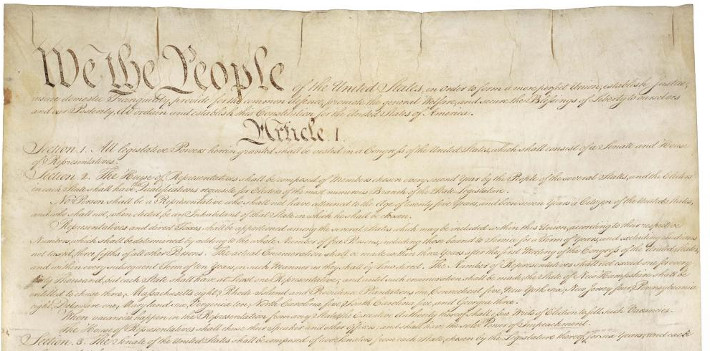 We the People of the United States, in Order to form a more perfect Union, establish Justice,
insure domestic Tranquility, provide for the common defence, promote the general Welfare, and secure the Blessings of Liberty to ourselves
and our Posterity, do ordain and establish this Constitution for the United States of America.
Article. I.
Section. 1. All legislative Powers herein granted shall be vested in a Congress of the United States, which shall consist of a Senate and House
of Representatives.
Section. 2. The House of Representatives shall be composed of Members chosen every second Year by the People of the several States, and the Electors
in each State shall have the Qualifications requisite for Electors of the most numerous Branch of the State Legislature.
No Person shall be a Representative who shall not have attained to the Age of twenty five Years, and been seven Years a Citizen of the United States,
and who shall not, when elected, be an Inhabitant of that State in which he shall be chosen.
Representatives and direct Taxes shall be apportioned among the several States which may be included within this Union, according to their respective
Numbers, which shall be determined by adding to the whole Number of free Persons, including those bound to Service for a Term of Years, and excluding Indians
not taxed, three fifths of all other Persons. The actual Enumeration shall be made within three Years after the first Meeting of the Congress of the United States,
and within every subsequent Term of ten Years, in such Manner as they shall by Law direct. The Number of Representatives shall not exceed one for every
thirty Thousand, but each State shall have at Least one Representative; and until such enumeration shall be made, the State of New Hampshire shall be
entitled to chuse three, Massachusetts eight, Rhode-Island and Providence Plantations one, Connecticut five, New-York six, New Jersey four, Pennsylvania
eight, Delaware one, Maryland six, Virginia ten, North Carolina five, South Carolina five, and Georgia three.
When vacancies happen in the Representation from any State, the Executive Authority thereof shall issue Writs of Election to fill such Vacancies.
The House of Representatives shall chuse their Speaker and other Officers; and shall have the sole Power of Impeachment.
Section. 3. The Senate of the United States shall be composed of two Senators from each State, chosen by the Legislature thereof, for six Years; and each